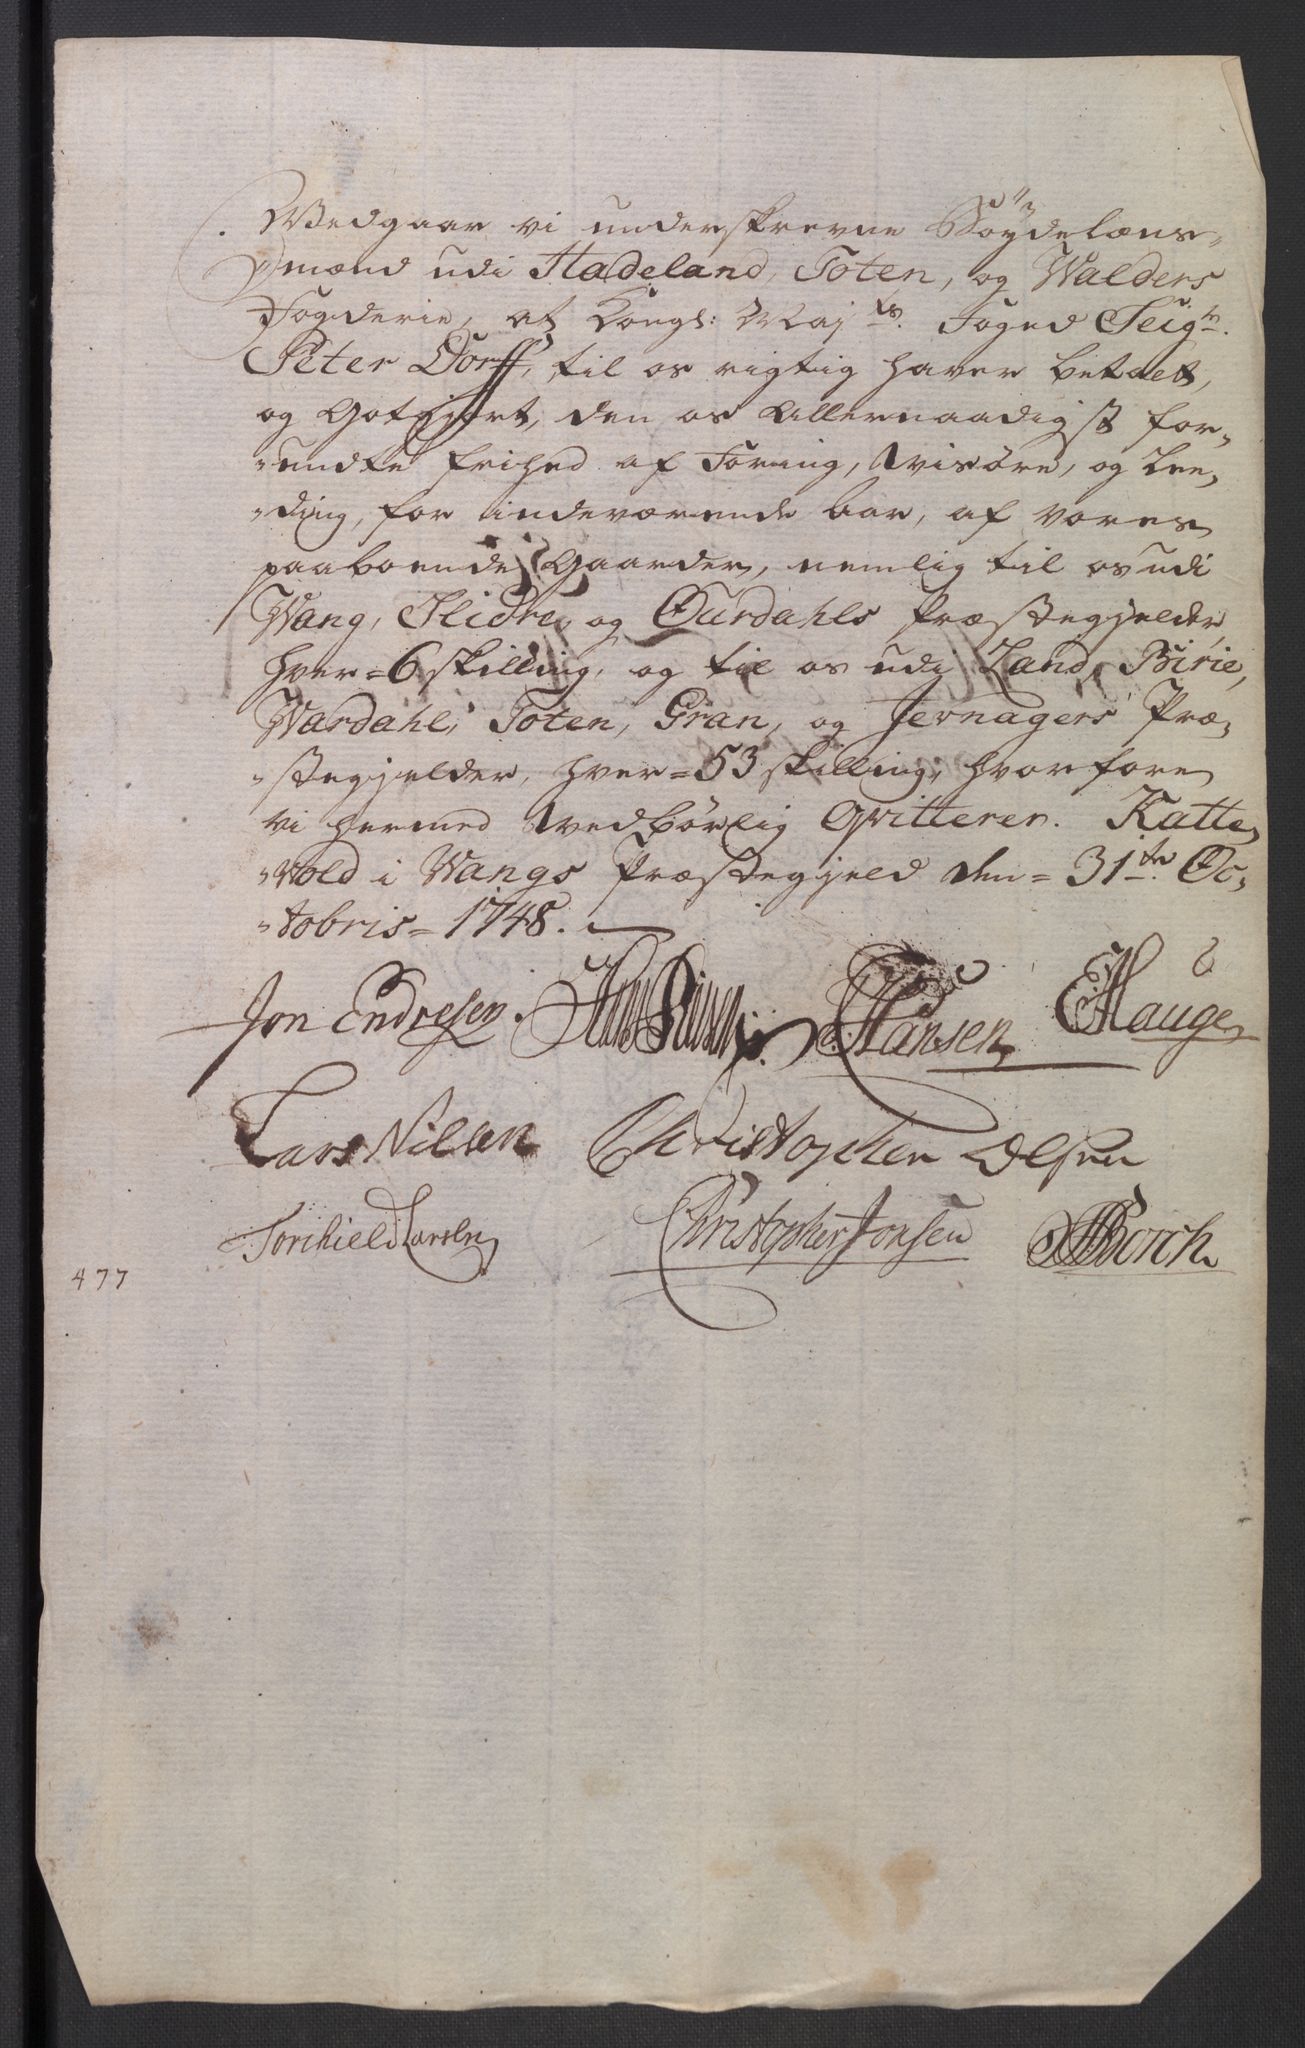 Wedgaar vi underskrevne Bøydelæns-
mænd udi Hadeland, Toten, og Walders
Fogderie, at Kongl: Maj:ts Foged Seigr.
Peter Dorff, til os rigtig haver betalt,
og Gotgjort, den os Allernaadigst for-
-undte frihed af Foring, Wisøre, og Lee-
-ding, for indeværende Aar, af vores
paaboende Gaarder, nemlig til os udi
Wang, Slidre, og Ourdahls Præstegjelder,
hver = 6 skilling, og til os udi Land, Birie,
Wardahl, Toten, Gran, og Jevnagers Præ-
-stegjelder, hver = 53 skilling, hvorfore
vi hermed vedbørlig Qvitterer. Katte-
-vold i Wangs Præstegjeld den = 31te Oc-
-tobris = 1748.
Jon Endresen. Hansen EHauge
Lars Nilsen Christopher Olsen
Torchield Larsen Christopher Jonsen Borch
477